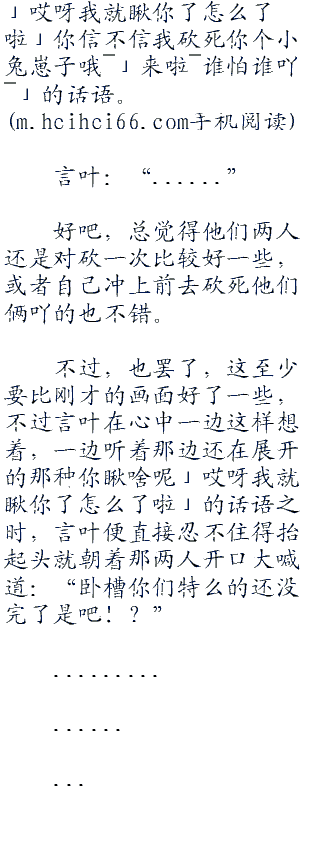 」哎呀我就瞅你了怎么了
啦」你信不信我砍死你个小
兔崽子哦¯」来啦¯谁怕谁吖
¯」的话语。
(m.hcihci66.com手机阅读)
言叶：“......”
好吧，总觉得他们两人
还是对砍一次比较好一些，
或者自己冲上前去砍死他们
俩吖的也不错。
不过，也罢了，这至少
要比刚才的画面好了一些，
不过言叶在心中一边这样想
着，一边听着那边还在展开
的那种你瞅啥呢」哎呀我就
瞅你了怎么了啦」的话语之
时，言叶便直接忍不住得抬
起头就朝着那两人开口大喊
道：“卧槽你们特么的还没
完了是吧！？”
.........
......
...